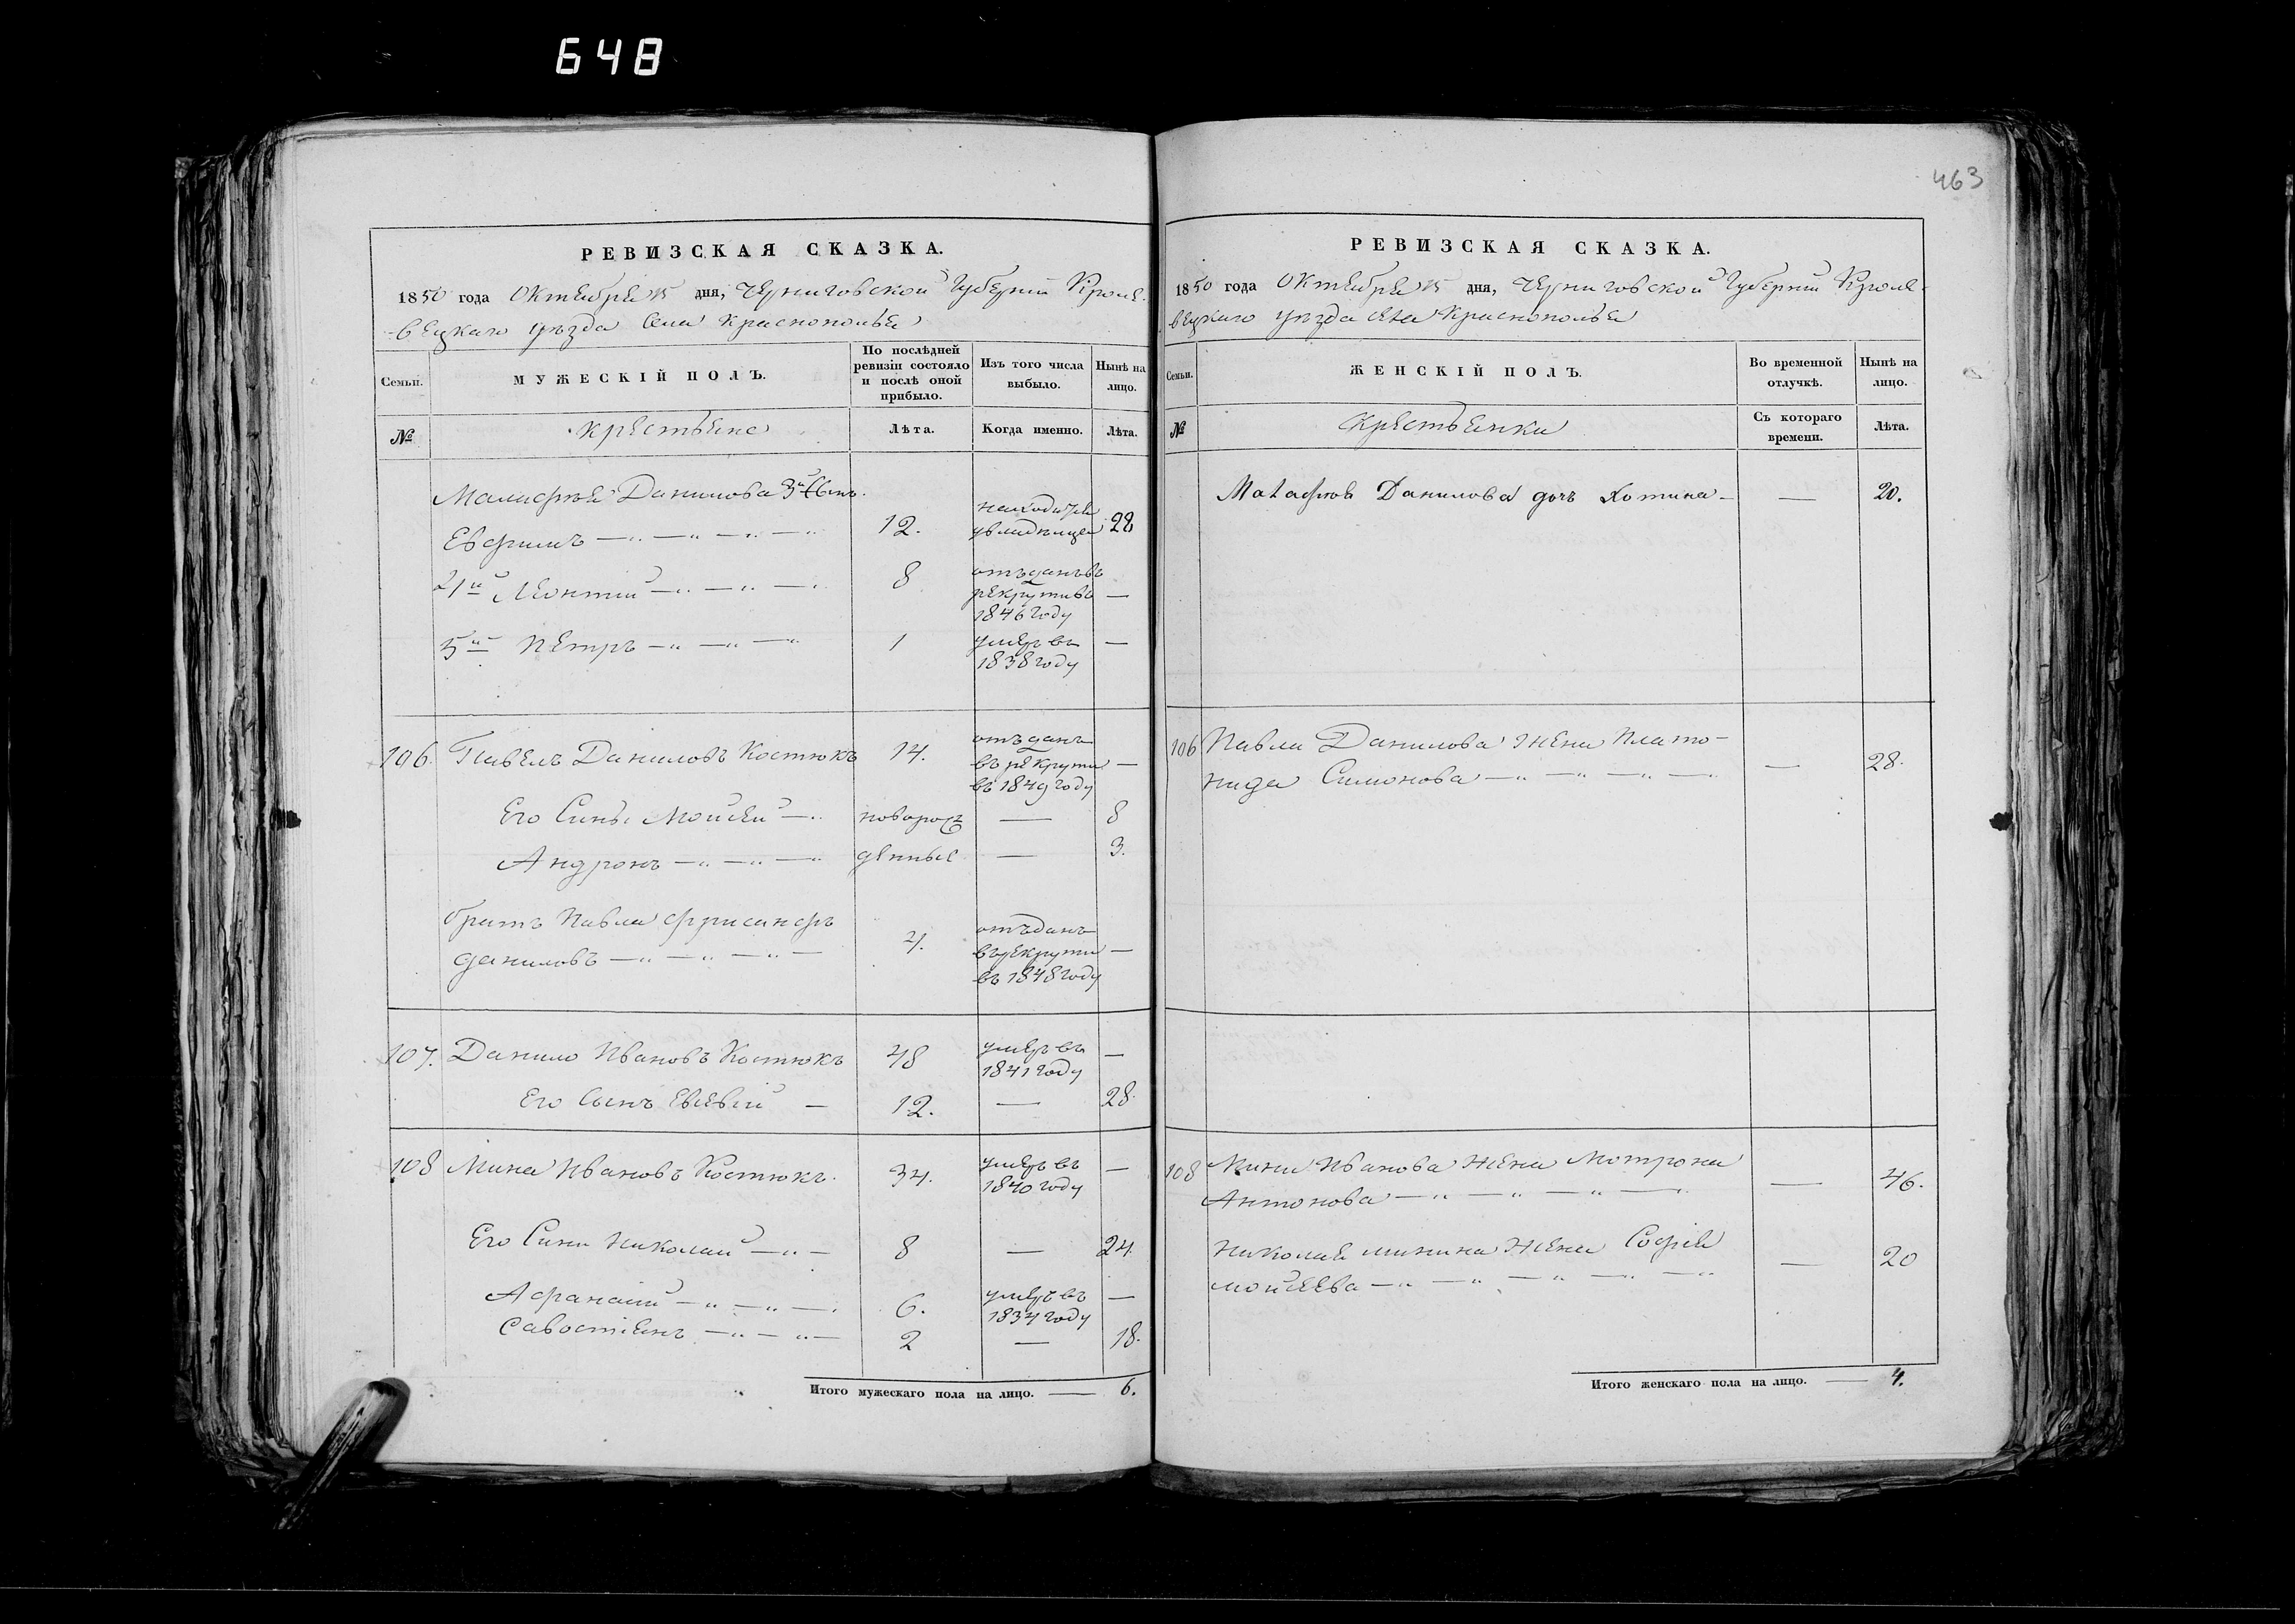 648
463
РЕВИЗСКАЯ СКАЗКА.
1850 года Октября 15 дня, Черниговской Губерніи Кроле-
вецкаго уѣзда Села Краснополья
Семьи.
МУЖЕСКІЙ ПОЛЪ.
По послѣдней ревизіи состояло и послѣ оной прибыло.
Изъ того числа выбыло.
Нынѣ на лицо.
№
Крестьяне
Лѣта.
Когда именно.
Лѣта.
Данилова 3й Сынъ
Евфимъ 12. находится 28
4й Леонтій 8 отъданъ въ
рекруты въ —
1846 году
5й Петръ 1 умеръ въ —
1838 году
106. Павелъ Даниловъ Костюкъ 14. отъданъ
въ рекруты —
въ 1849 году
Его Сины Мойсей новорож — 8
Андронъ денные — 3.
братъ Павла
Даниловъ 4. отъданъ
въ рекруты —
въ 1848 году
107. Данило Ивановъ Костюкъ 48 умеръ въ —
1841 году
Его Сынъ Евсевій — 12. — 28.
108 Мина Ивановъ Костюкъ. 34. умеръ въ —
1840 году
Его Сини Николай 8 — 24.
Афанасій 6. умеръ въ —
1834 году
Савостіянъ 2 — 18.
Итого мужескаго пола на лицо. — 6.
РЕВИЗСКАЯ СКАЗКА.
1850 года Октября 15 дня, Черниговской Губерніи Кроле-
вецкаго уѣзда села Краснополья
Семьи.
ЖЕНСКІЙ ПОЛЪ.
Во временной отлучкѣ.
Нынѣ на лицо.
№
Крестьянки
Съ котораго времени.
Лѣта.
Данилова дочь — 20.
106 Павла Данилова жена Плато-
нида Симонова — 28.
108 Мини Иванова жена Мотрона
Антонова — 46.
Николая Минина жена Софія
Мойсеева — 20
Итого женскаго пола на лицо. — 4.